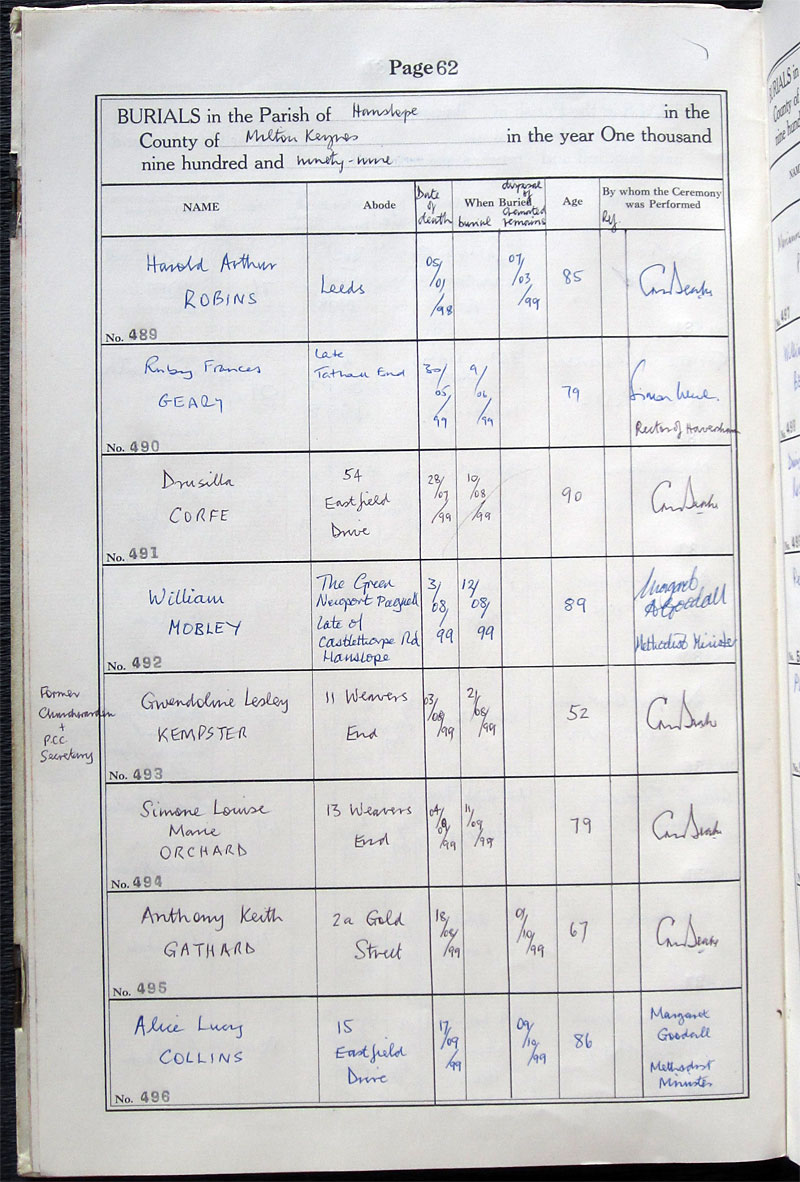 Page 62
BURIALS in the Parish of Hanslope in the
County of Milton Keynes in the year One thousand
nine hundred and ninety-nine
NAME
Abode
Date of death
When Buried
burial
disposal of cremated remains
Age
By whom the Ceremony was Performed
Harold Arthur
ROBINS
No. 489
Leeds
05/
01
/98
07/
/03
/99
85
Ruby Frances
GEARY
No. 490
Late
Tathall End
30/
05/
99
9/
06
/99
79
Rector of Haversham
Drusilla
CORFE
No. 491
54
Eastfield
Drive
28/
/07
/99
10/
/08
/99
90
William
MOBLEY
No. 492
The Green
Newport Pagnell
Late of
Castlethorpe Rd
Hanslope
3/
08/
99
12/
08/
99
89
Margaret
A Goodall
Methodist Minister
Former
Churchwarden
+
P.C.C.
Secretary
Gwendoline Lesley
KEMPSTER
No. 493
11 Weavers
End
03/
/08
/99
2/
/08/
/99
52
Simone Louise
Marie
ORCHARD
No. 494
13 Weavers
End
04/
/99
11/
/09
/99
79
Anthony Keith
GATHARD
No. 495
2a Gold
Street
18/
/08/
/99
/10
/99
67
Alice Lucy
COLLINS
No. 496
15
Eastfield
Drive
17/
/09
/99
09/
/10
/99
86
Margaret
Goodall
Methodist
Minister